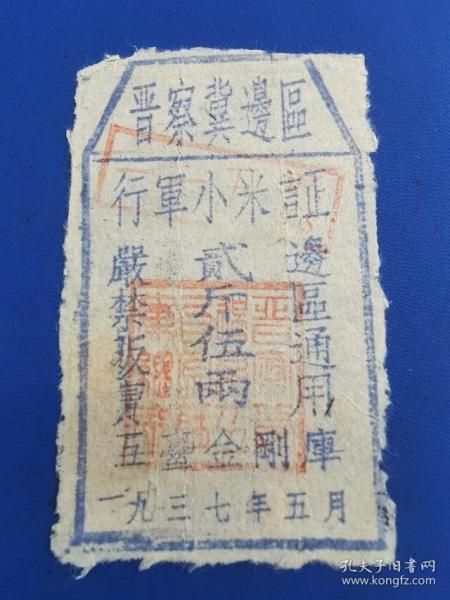 晋察冀邊區
行軍小米証
邊區通用
貳斤伍兩
嚴禁販賣
五臺金剛庫
一九三七年五月
孔夫子旧书网
www.kongfz.com